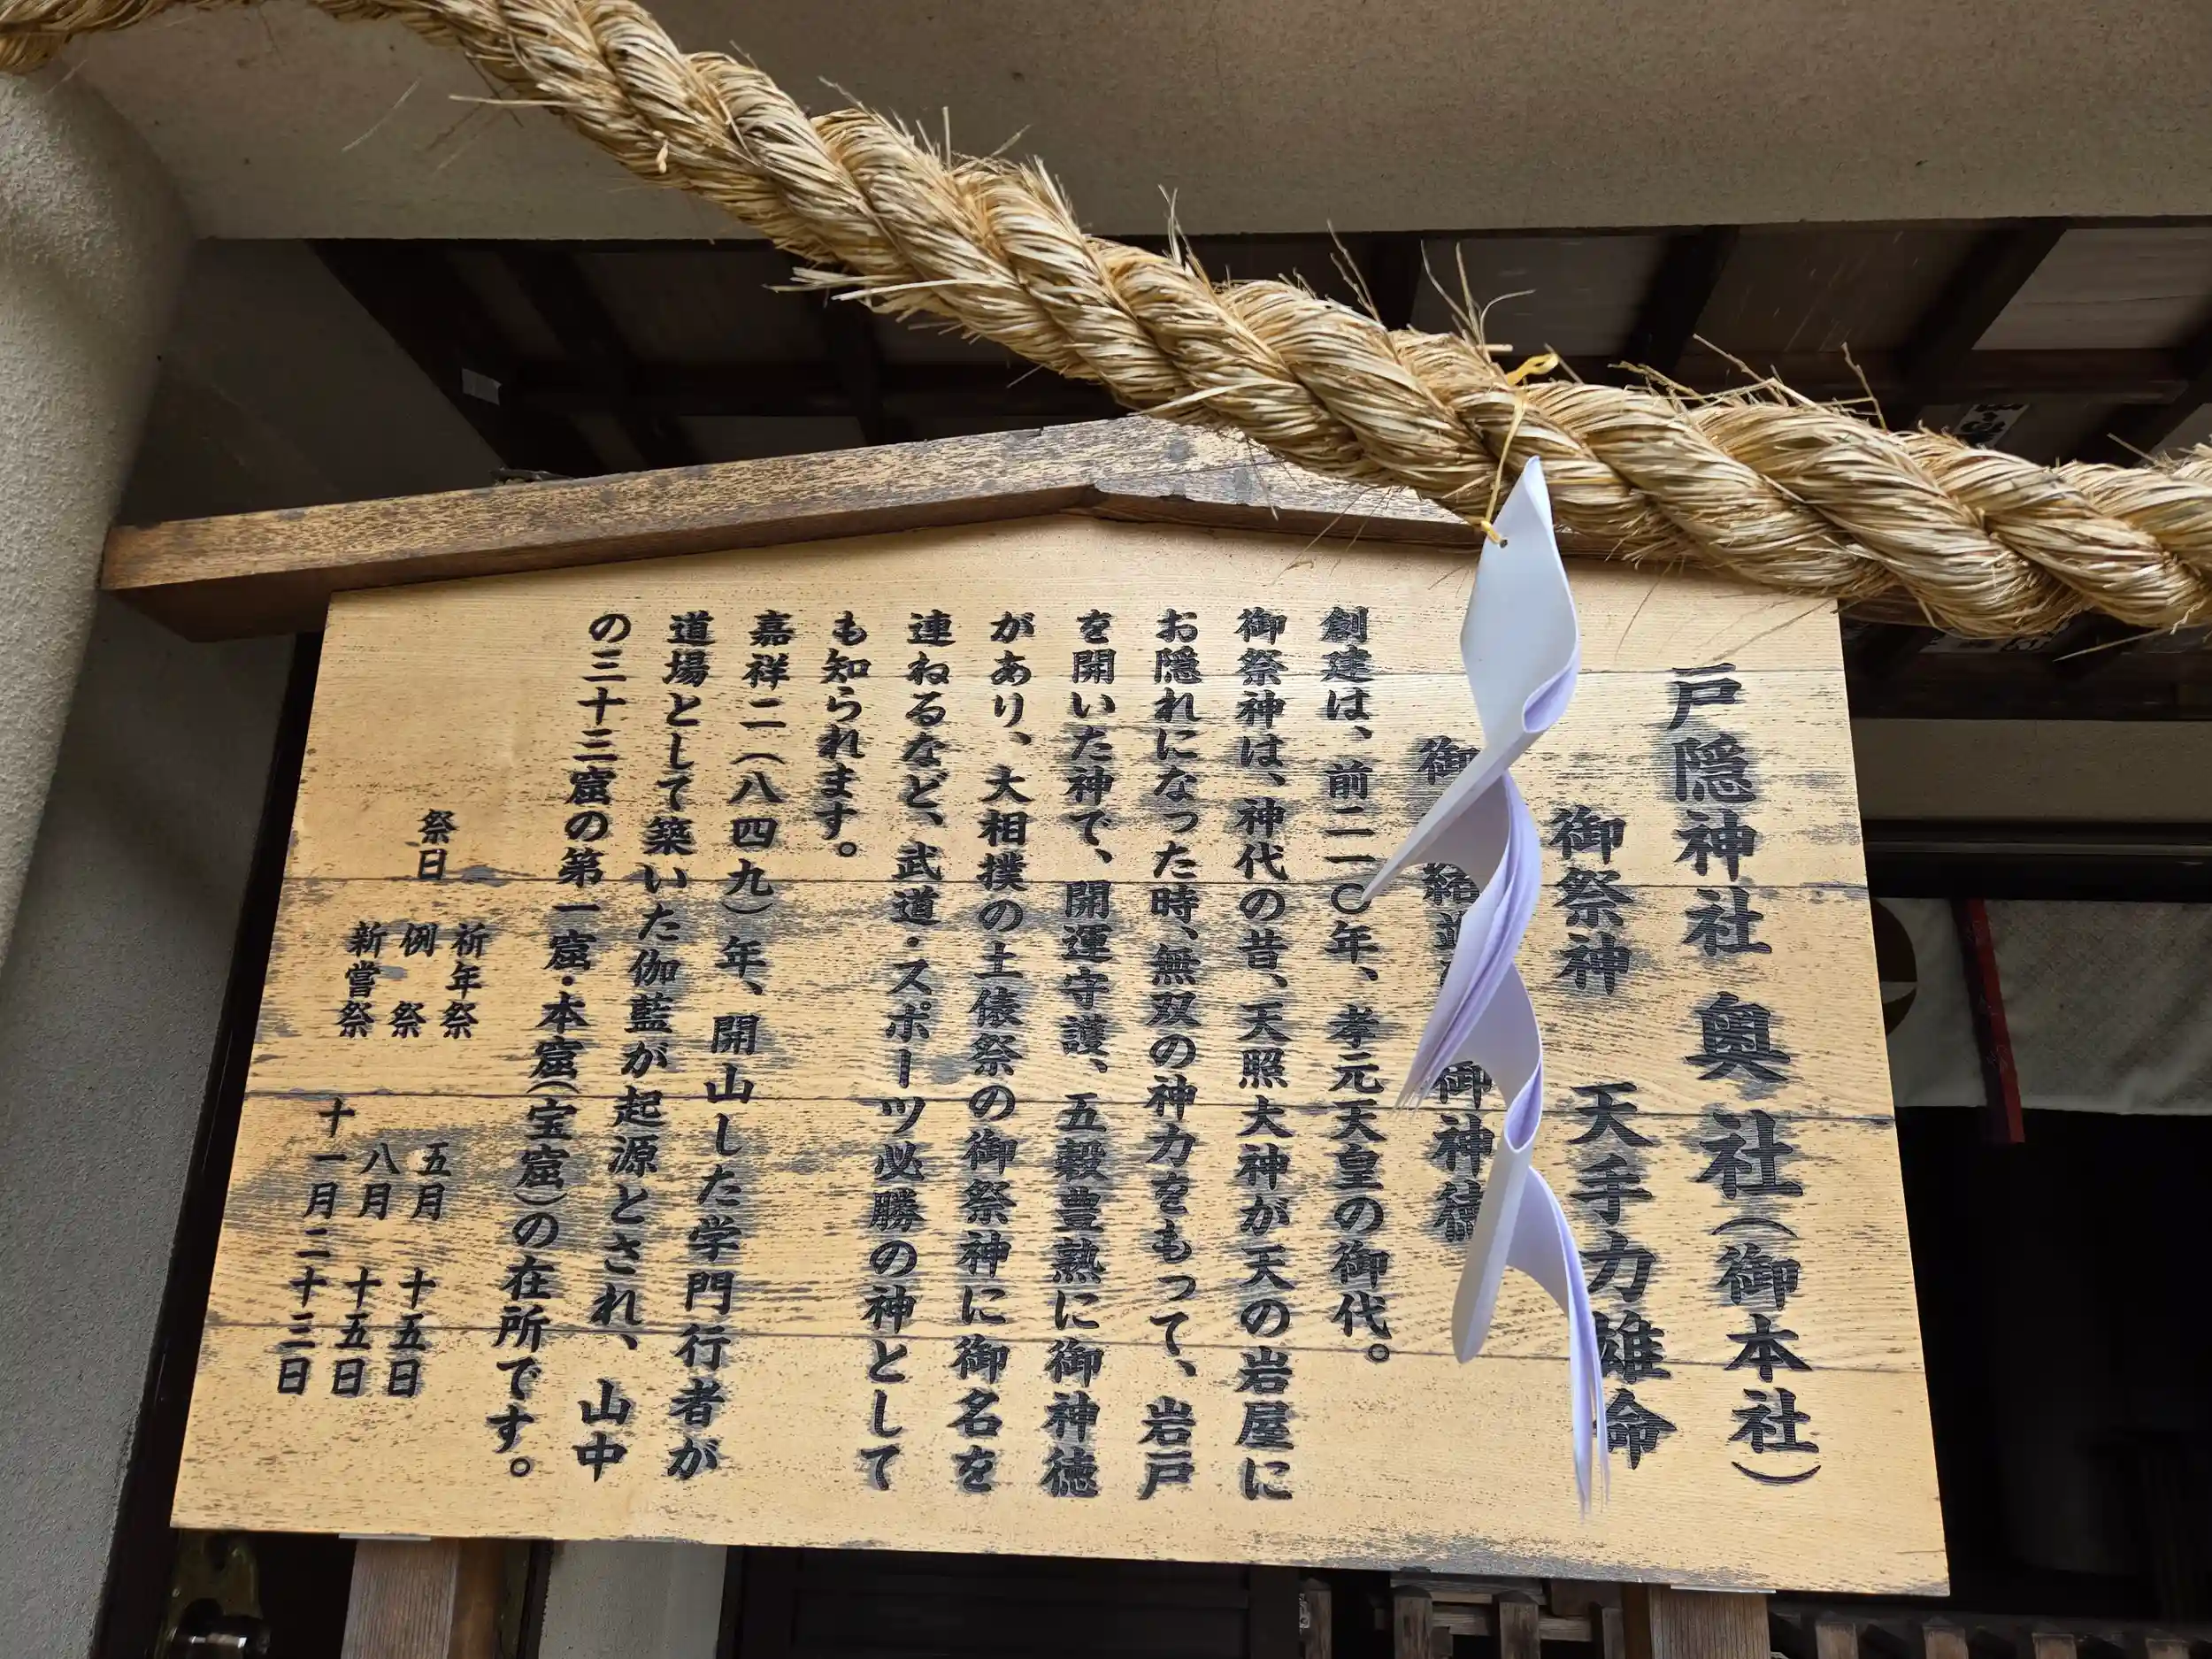 戸隠神社 奥社（御本社）
御祭神 天手力雄命
御 御神徳
創建は、前二一〇年、孝元天皇の御代。
御祭神は、神代の昔、天照大神が天の岩屋に
お隠れになった時、無双の神力をもって、岩戸
を開いた神で、開運守護、五穀豊熟に御神徳
があり、大相撲の土俵祭の御祭神に御名を
連ねるなど、武道・スポーツ必勝の神として
も知られます。
嘉祥二（八四九）年、開山した学門行者が
道場として築いた伽藍が起源とされ、山中
の三十三窟の第一窟・本窟（宝窟）の在所です。
祭日
祈年祭 五月 十五日
例祭 八月 十五日
新嘗祭 十一月二十三日